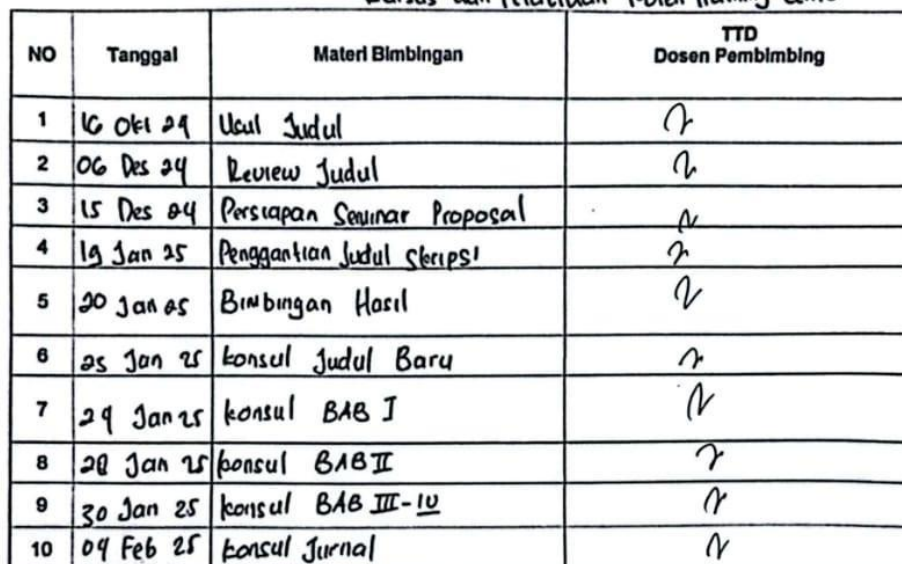 NO Tanggal Materi Bimbingan TTD Dosen Pembimbing
1 16 Okt 24 Usul Judul
2 06 Des 24 Review Judul
3 15 Des 24 Persiapan Seminar Proposal
4 19 Jan 25 Penggantian Judul Skripsi
5 20 Jan 25 Bimbingan Hasil
6 25 Jan 25 konsul Judul Baru
7 Jan 25 konsul BAB I
8 28 Jan 25 konsul BAB II
9 30 Jan 25 konsul BAB III-IV
10 Feb 25 konsul Jurnal